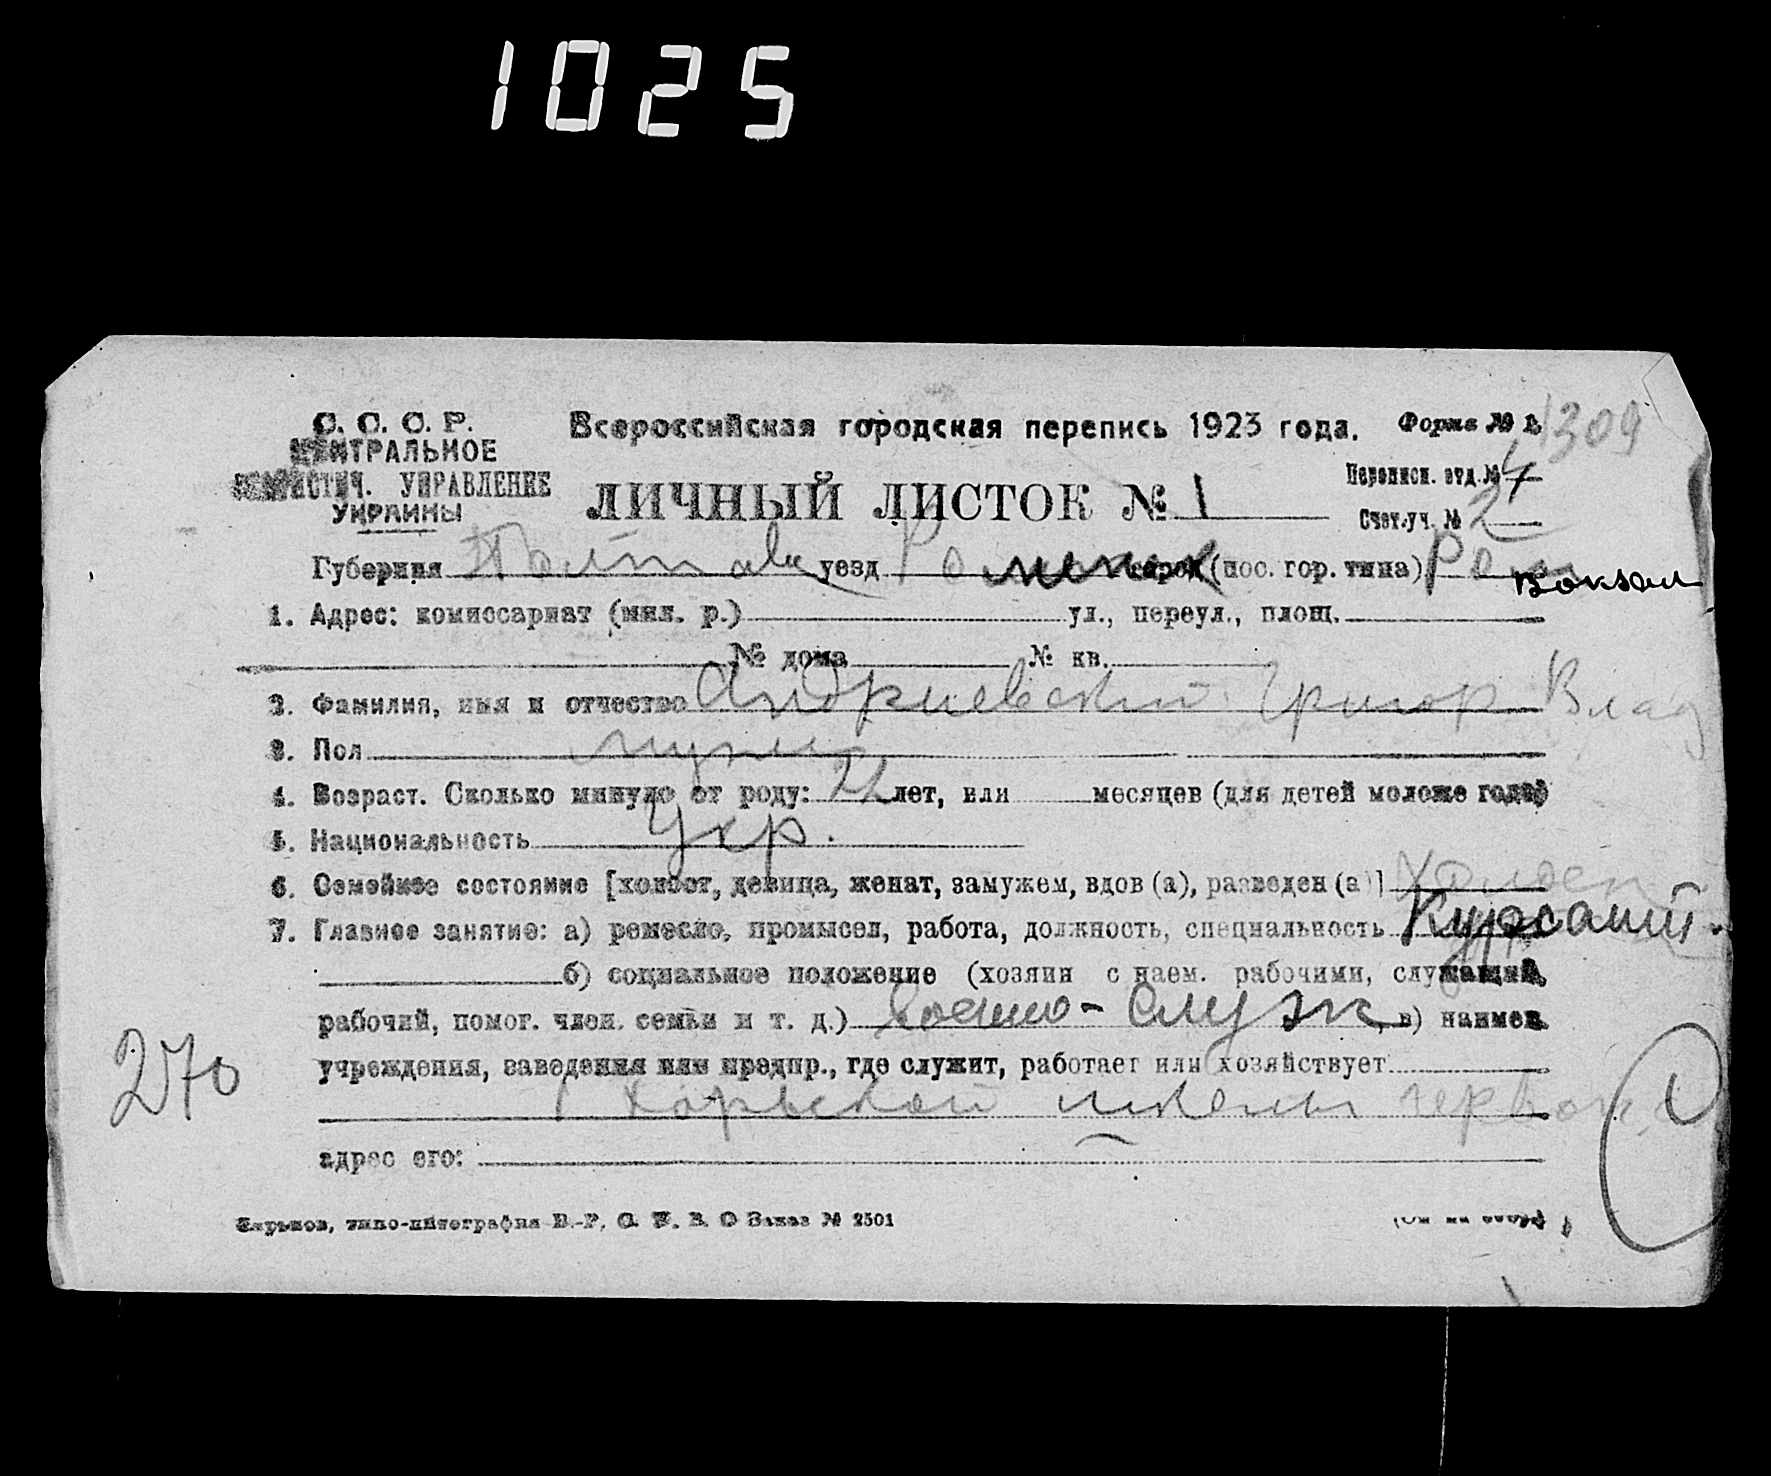 1025
С. С. С. Р.
ЦЕНТРАЛЬНОЕ
СТАТИСТИЧ. УПРАВЛЕНИЕ
УКРАИНЫ
Всероссийская городская перепись 1923 года.
Форма № 1.
1309
ЛИЧНЫЙ ЛИСТОК № 1
Переписн. отд. № 4
Счет. уч. № 2
Губерния Полтав уезд Роменск город (пос. гор. типа) Ром
Вокзал
1. Адрес: комиссариат (мил. р.) ул., переул., площ.
№ дома № кв.
2. Фамилия, имя и отчество Андриевский Григор Влад
3. Пол мужск
4. Возраст. Сколько минуло от роду: 22 лет, или месяцев (для детей моложе года)
5. Национальность Укр.
6. Семейное состояние [холост, девица, женат, замужем, вдов (а), разведен (а)] Холост
7. Главное занятие: а) ремесло, промысел, работа, должность, специальность Курсант.
б) социальное положение (хозяин с наем. рабочими, служащий,
рабочий, помог. член. семьи и т. д.) военно-служ, в) наимен.
учреждения, заведения или предпр., где служит, работает или хозяйствует
Харьвской школы червон.
адрес его:
270
1
Харьков, типо-литография В.-У. С. Заказ № 2501